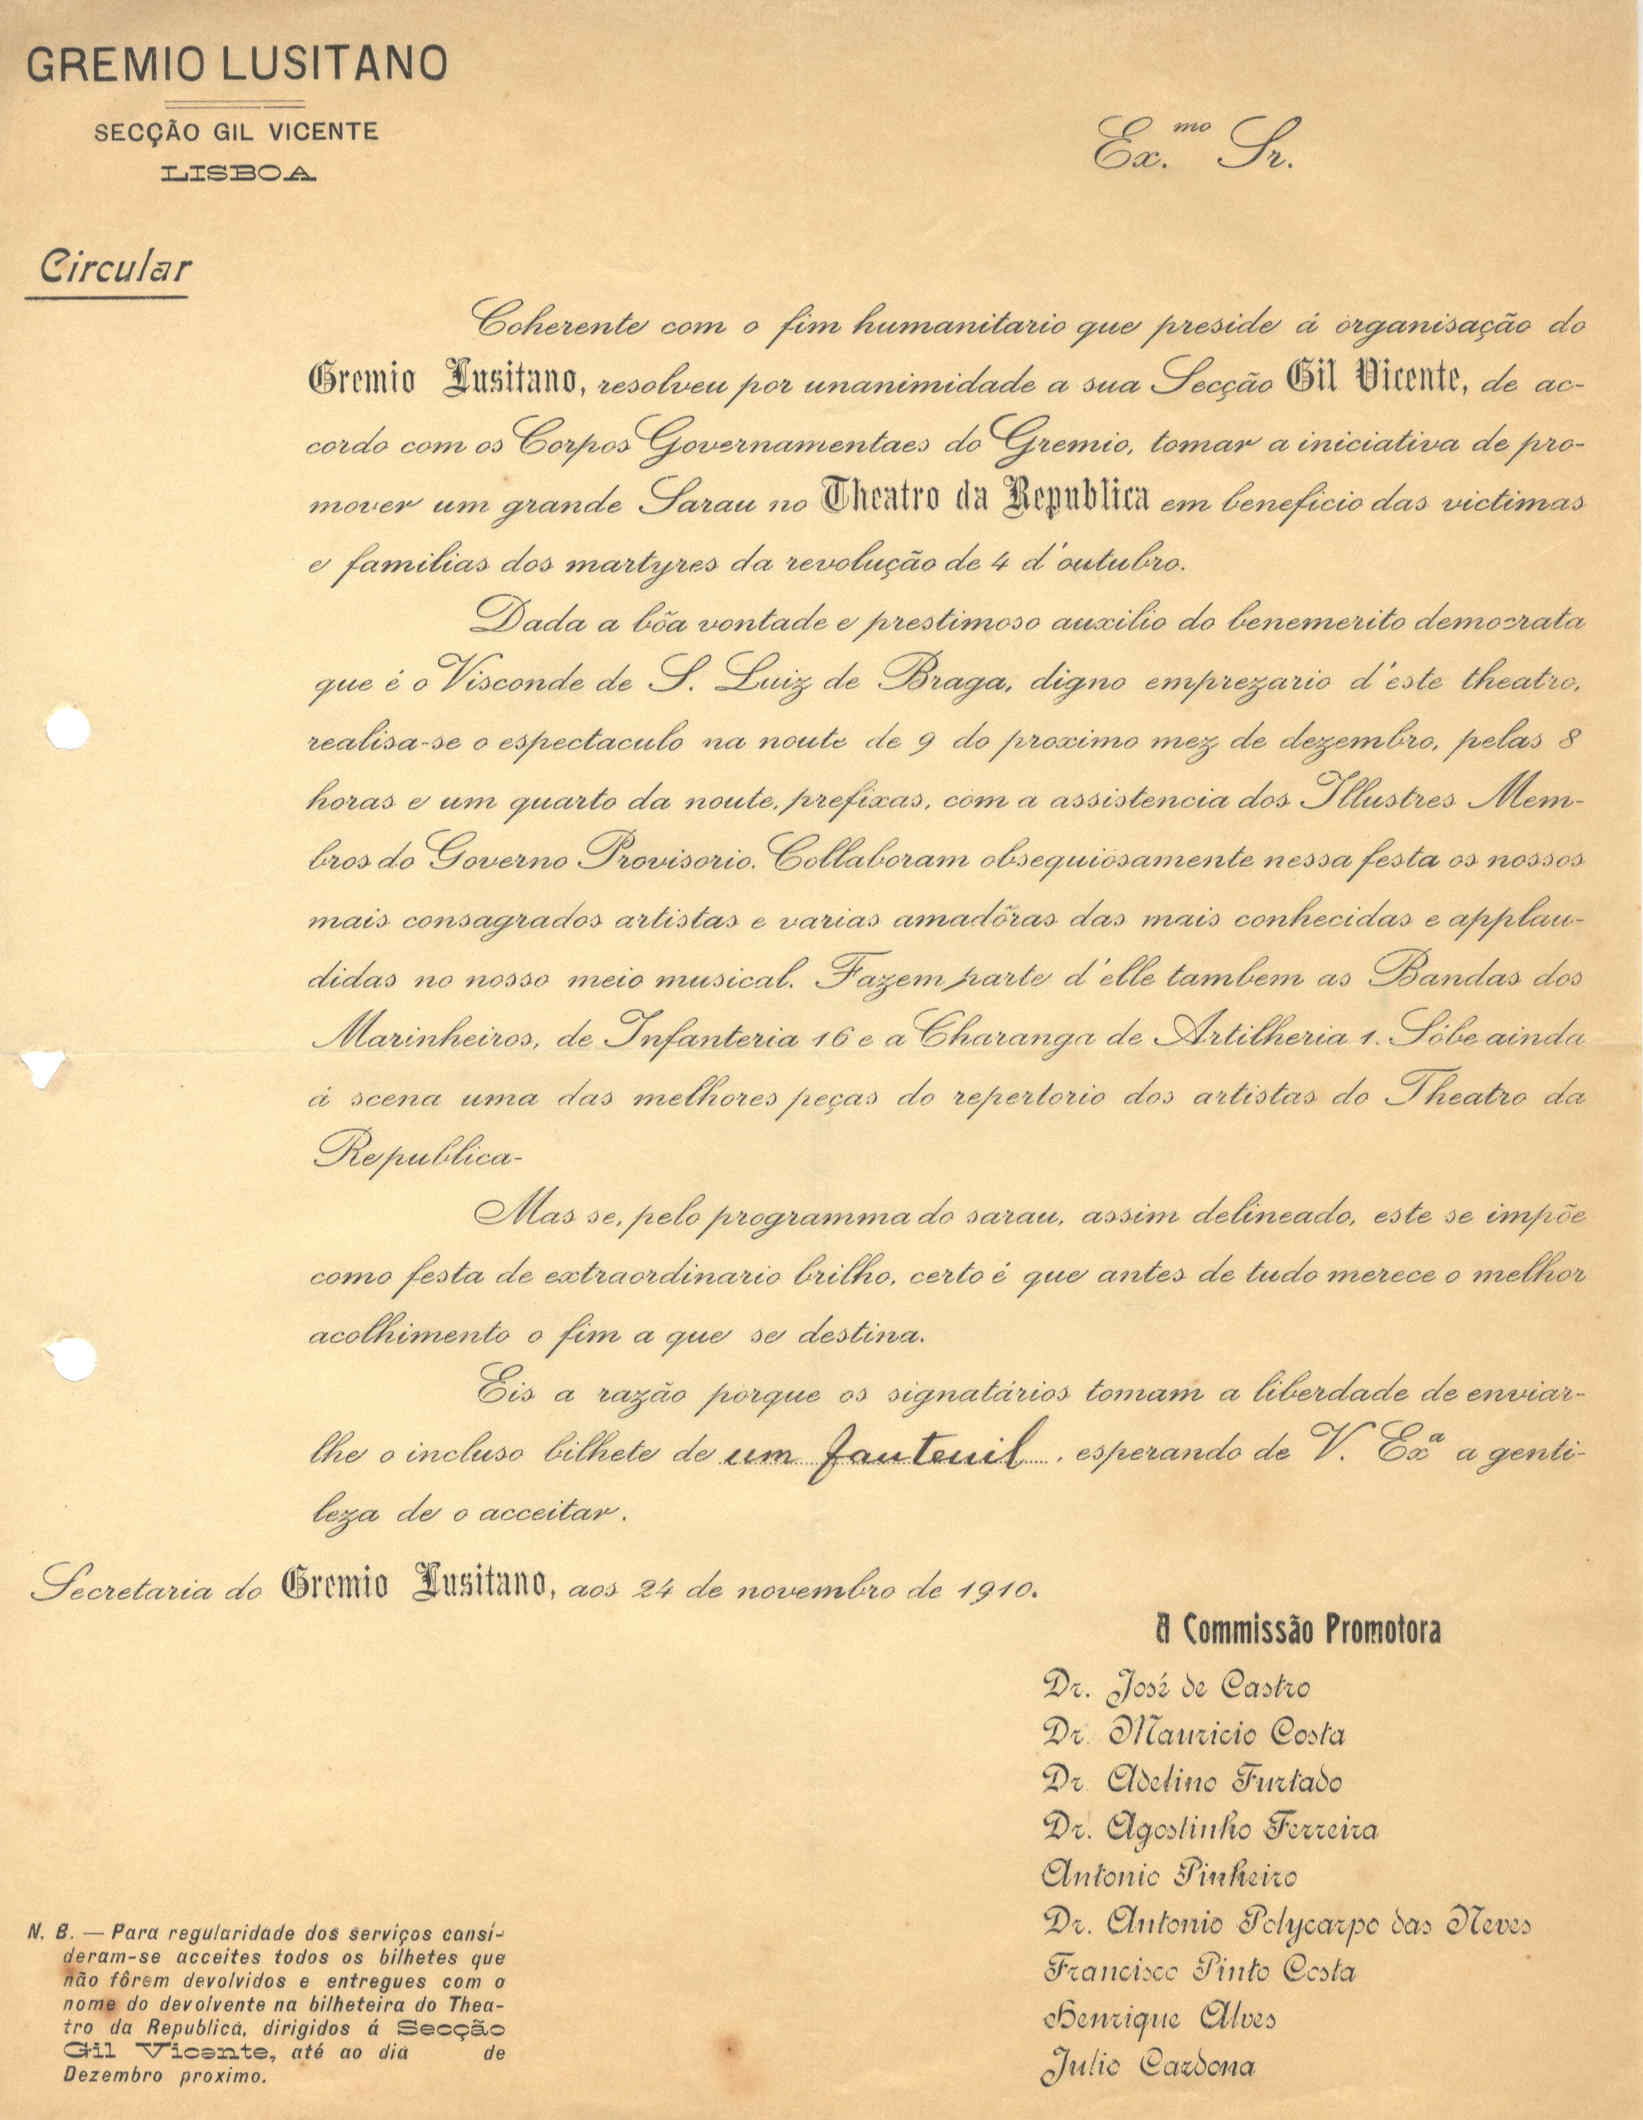 GREMIO LUSITANO
SECÇÃO GIL VICENTE
LISBOA
Ex.mo Sr.
Circular
Coherente com o fim humanitario que preside á organisação do
Gremio Lusitano, resolveu por unanimidade a sua Secção Gil Vicente, de ac-
cordo com os Corpos Governamentaes do Gremio, tomar a iniciativa de pro-
mover um grande Sarau no Theatro da Republica em beneficio das victimas
e familias dos martyres da revolução de 4 d'outubro.
Dada a bôa vontade e prestimoso auxilio do benemerito democrata
que é o Visconde de S. Luiz de Braga, digno emprezario d'este theatro,
realisa-se o espectaculo na noute de 9 do proximo mez de dezembro, pelas 8
horas e um quarto da noute, prefixas, com a assistencia dos Illustres Mem-
bros do Governo Provisorio. Collaboram obsequiosamente nessa festa os nossos
mais consagrados artistas e varias amadôras das mais conhecidas e applau-
didas no nosso meio musical. Fazem parte d'elle tambem as Bandas dos
Marinheiros, de Infanteria 16 e a Charanga de Artilheria 1. Sóbe ainda
á scena uma das melhores peças do repertorio dos artistas do Theatro da
Republica-
Mas se, pelo programma do sarau, assim delineado, este se impõe
como festa de extraordinario brilho, certo é que antes de tudo merece o melhor
acolhimento o fim a que se destina.
Eis a razão porque os signatários tomam a liberdade de enviar-
lhe o incluso bilhete de um fauteuil, esperando de V. Exª a genti-
leza de o acceitar.
Secretaria do Gremio Lusitano, aos 24 de novembro de 1910.
A Commissão Promotora
Dr. José de Castro
Dr. Mauricio Costa
Dr. Adelino Furtado
Dr. Agostinho Ferreira
Antonio Pinheiro
Dr. Antonio Polycarpo das Neves
Francisco Pinto Costa
Henrique Alves
Julio Cardona
N. B. — Para regularidade dos serviços consi-
deram-se acceites todos os bilhetes que
não fôrem devolvidos e entregues com o
nome do devolvente na bilheteira do Thea-
tro da Republica, dirigidos á Secção
Gil Vicente, até ao dia de
Dezembro proximo.